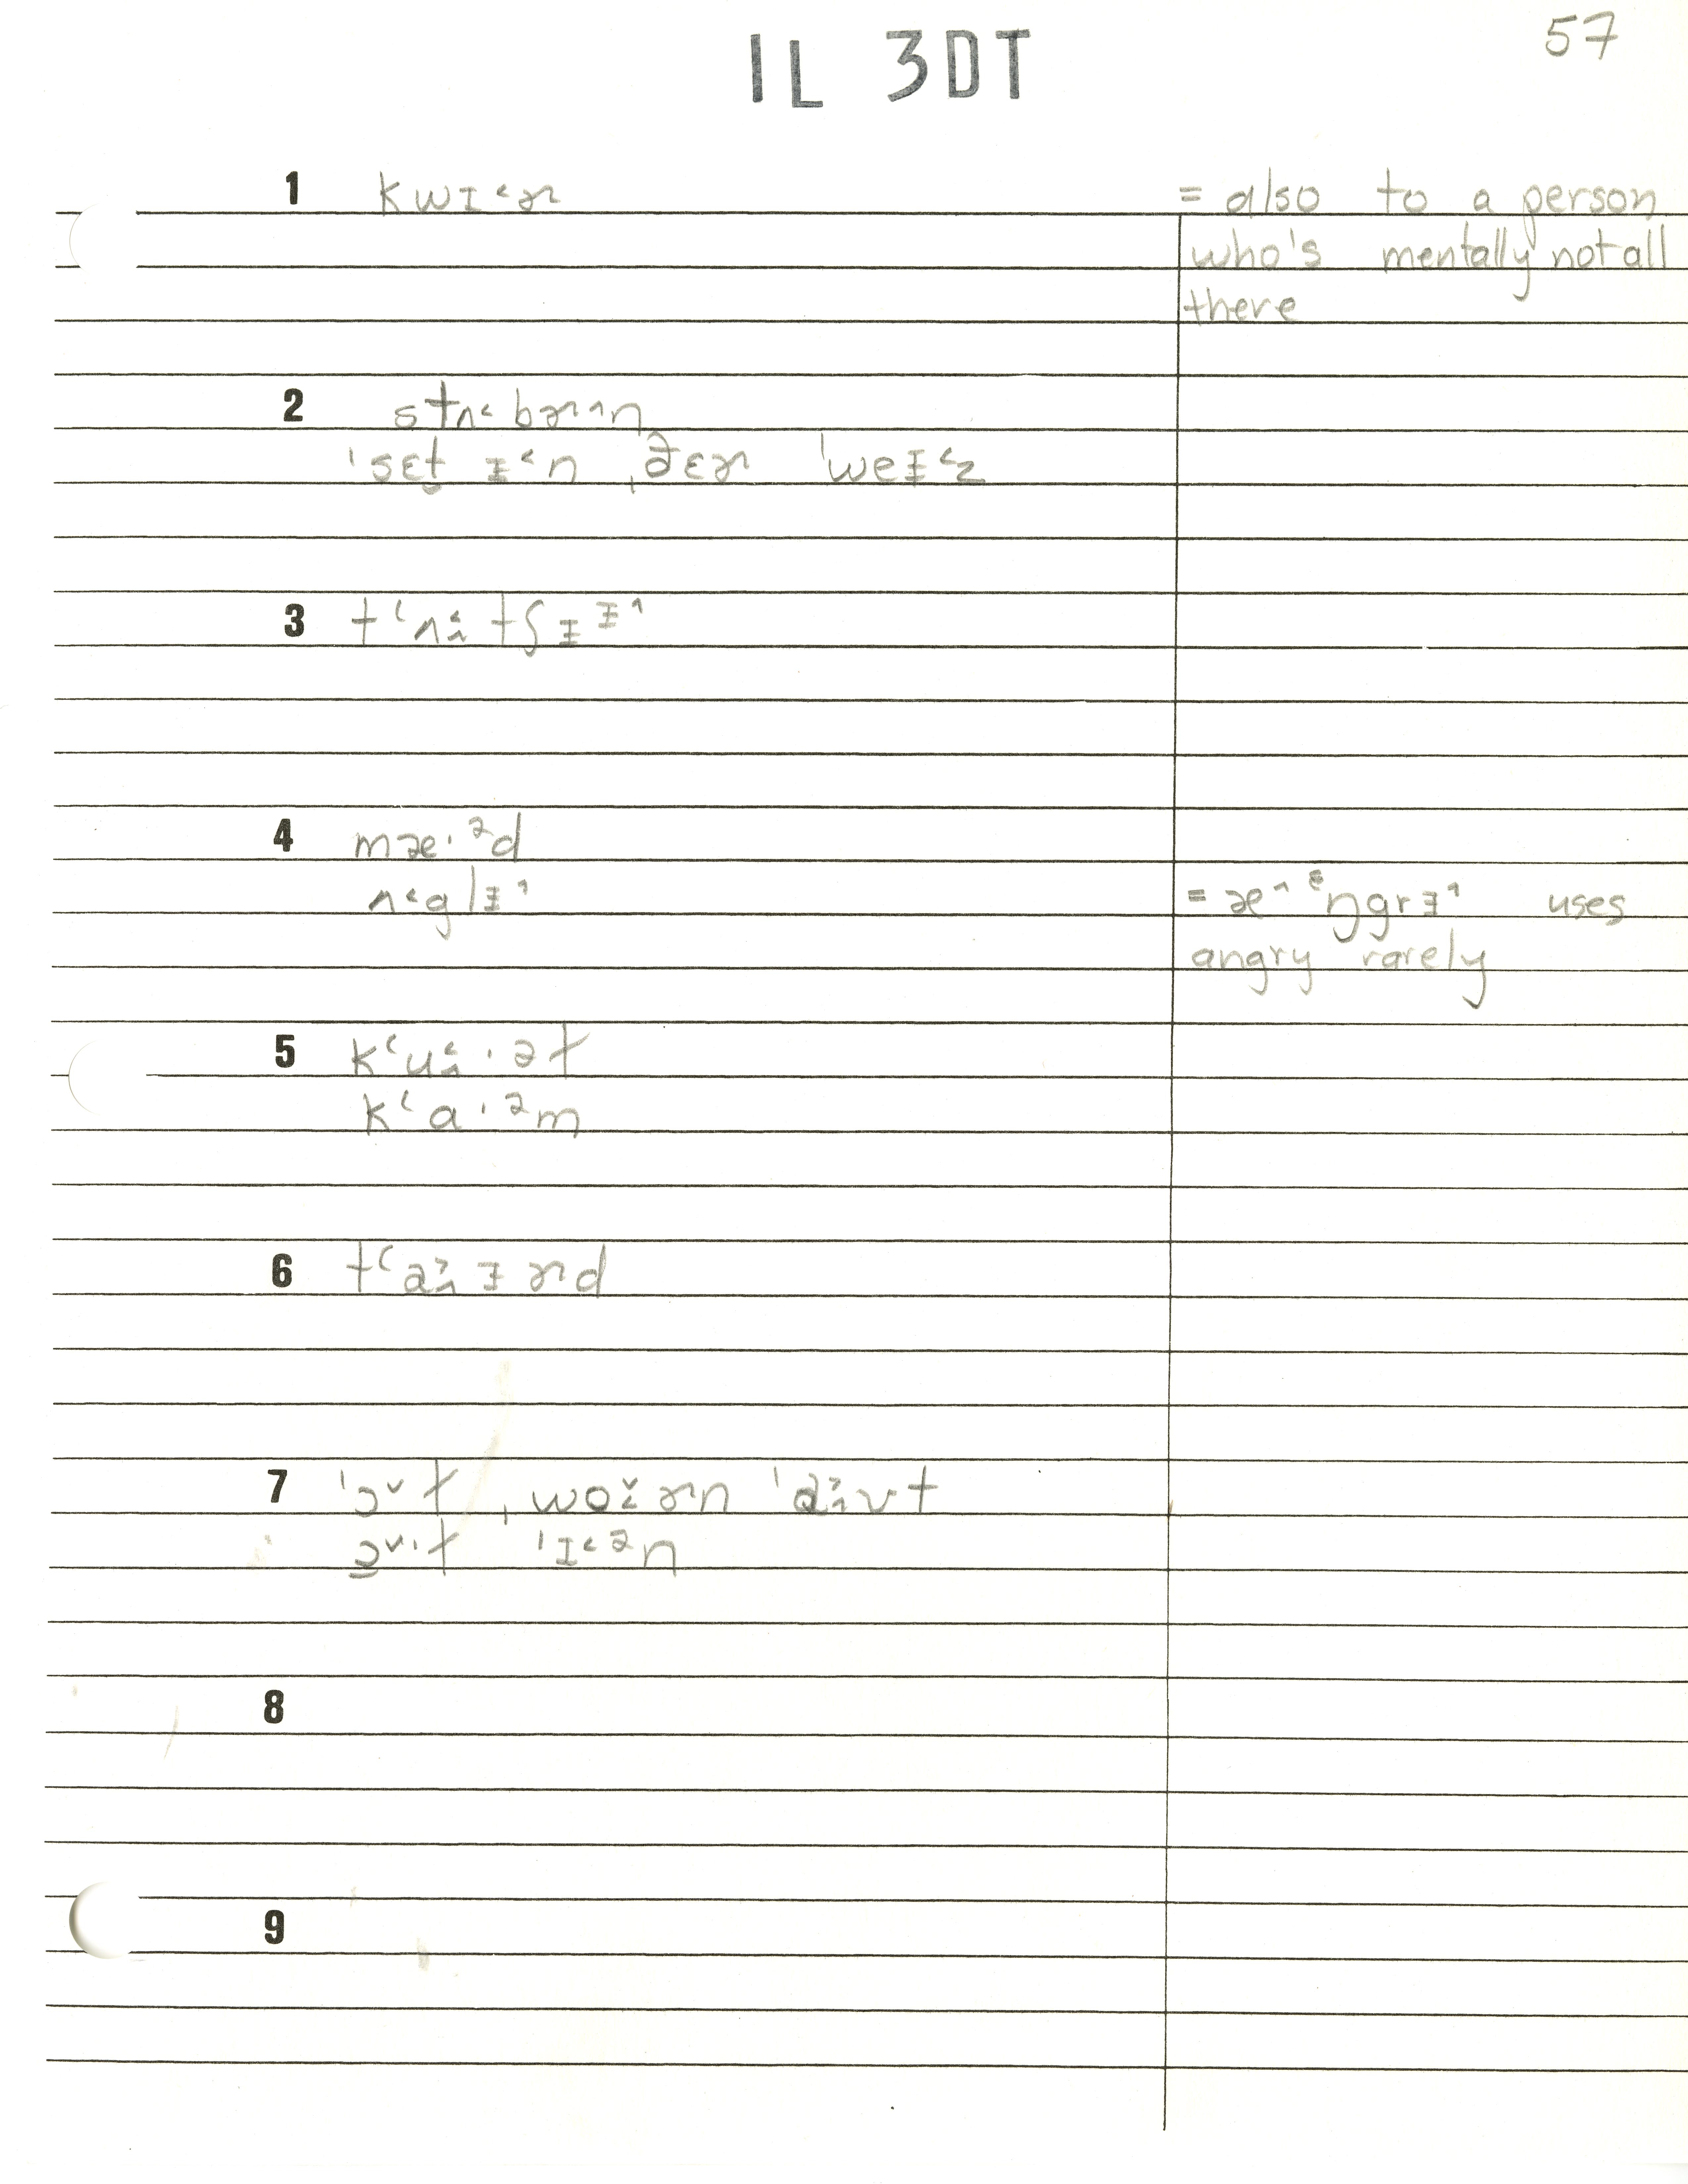 57
IL 3DT
1 kwɪ˂ɚ = also to a person
who's mentally not all
there
2 stʌ˂bɚ˄n
ˈsɛt̬ ɪ˂n ˌðɛɚ ˈweɪ˂z
3 tʻʌ˂˄tʃɪᵻ˄
4 mæ·ᵊd
ʌ˂glᵻ˄ = æ˄ᵋŋgrᵻ˄ uses
angry rarely
5 kʻu˂˄·ət
kʻɑ·ᵊm
6 tʻa˃˄ᵻɚd
7 ˈɔ˅t ˌwo˅˂ɚn ˈa˃˄ʊt
ɔ˅·t ˈɪ˂ᵊn
8
9